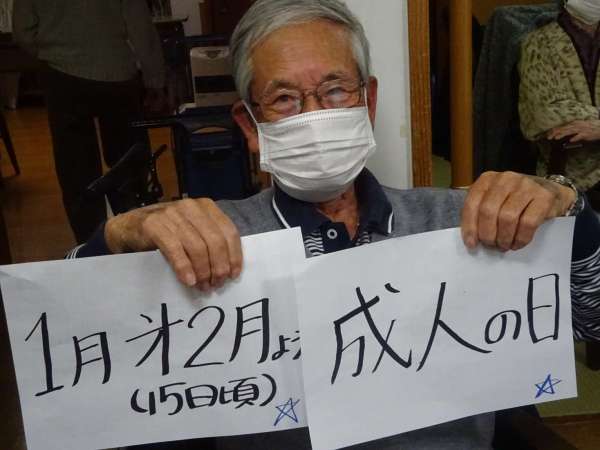 1月 才2月よう
(15日頃)
成人の日